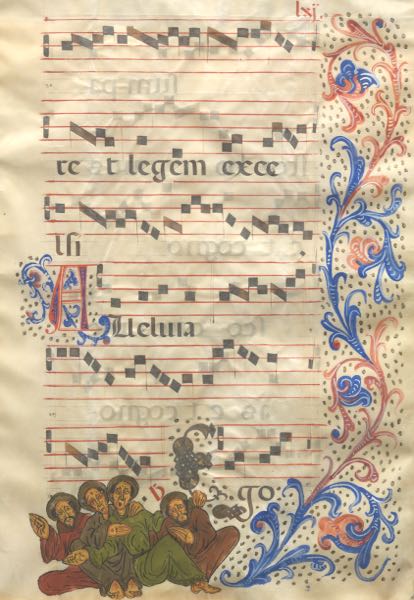 lxij.
re t legem exce
lsi
Alleluia
℣. Ego